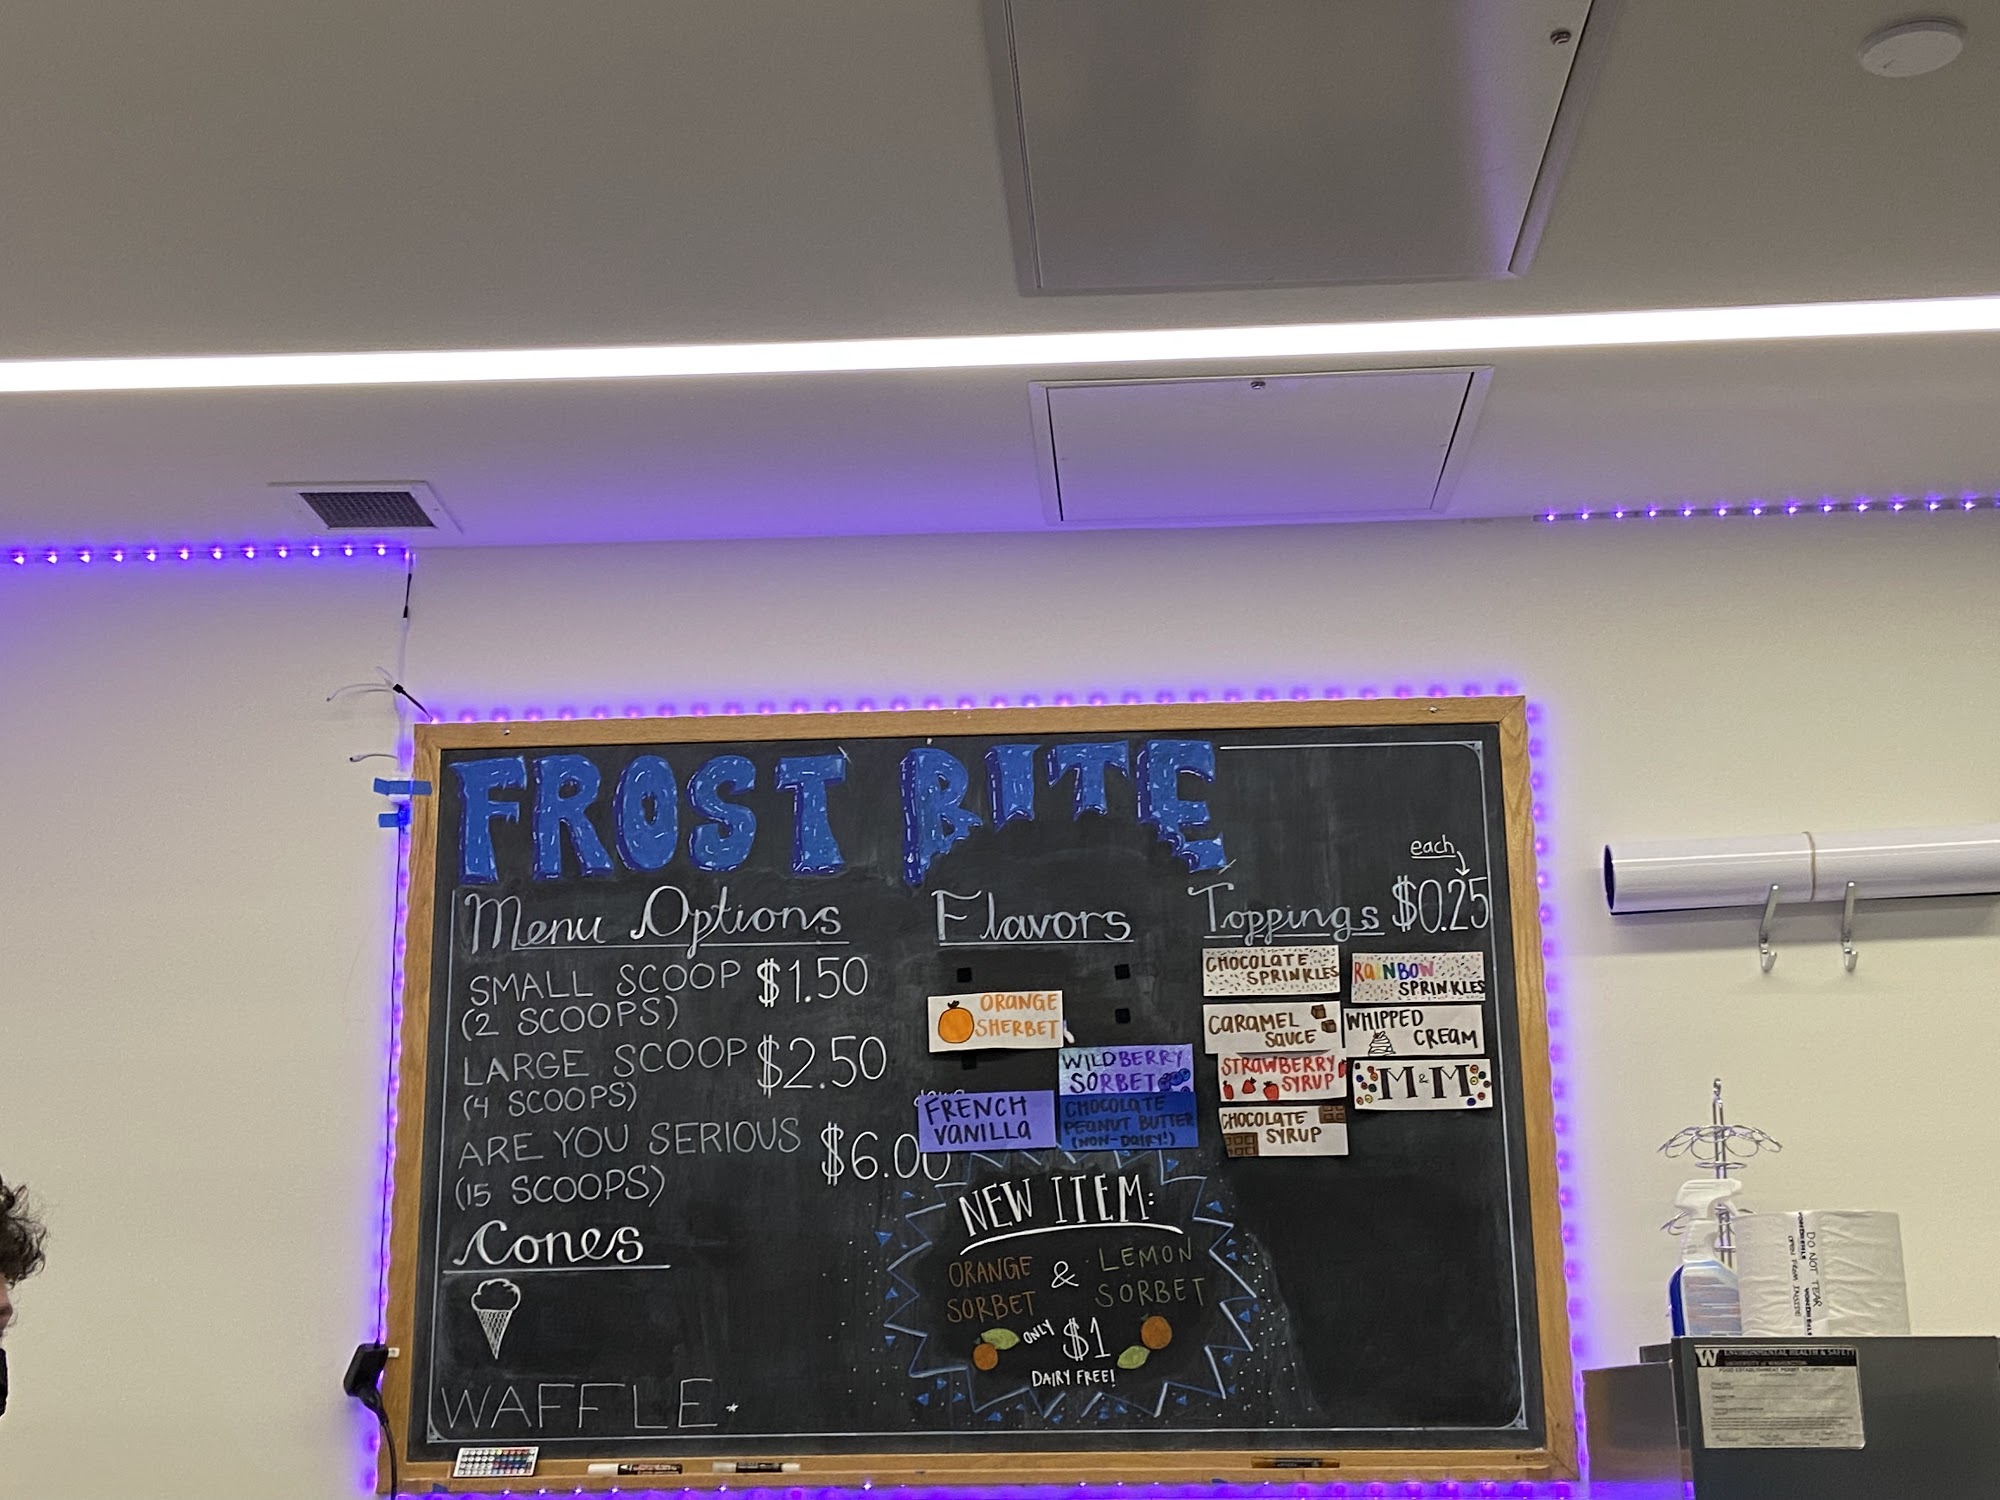 FROST BITE
Menu Options
SMALL SCOOP $1.50
(2 SCOOPS)
LARGE SCOOP $2.50
(4 SCOOPS)
ARE YOU SERIOUS $6.00
(15 SCOOPS)
Cones
WAFFLE
Flavors
ORANGE
SHERBET
WILDBERRY
SORBET
FRENCH
VANILLA
CHOCOLATE
PEANUT BUTTER
(NON-DAIRY!)
NEW ITEM:
ORANGE
SORBET
&
LEMON
SORBET
ONLY $1
DAIRY FREE!
each
Toppings $0.25
CHOCOLATE
SPRINKLES
RAINBOW
SPRINKLES
CARAMEL
SAUCE
WHIPPED
CREAM
STRAWBERRY
SYRUP
M&M
CHOCOLATE
SYRUP
DO NOT TEAR
OPEN FROM INSIDE
W ENVIRONMENTAL HEALTH & SAFETY
UNIVERSITY of WASHINGTON
FOOD ESTABLISHMENT PERMIT TO OPERATE